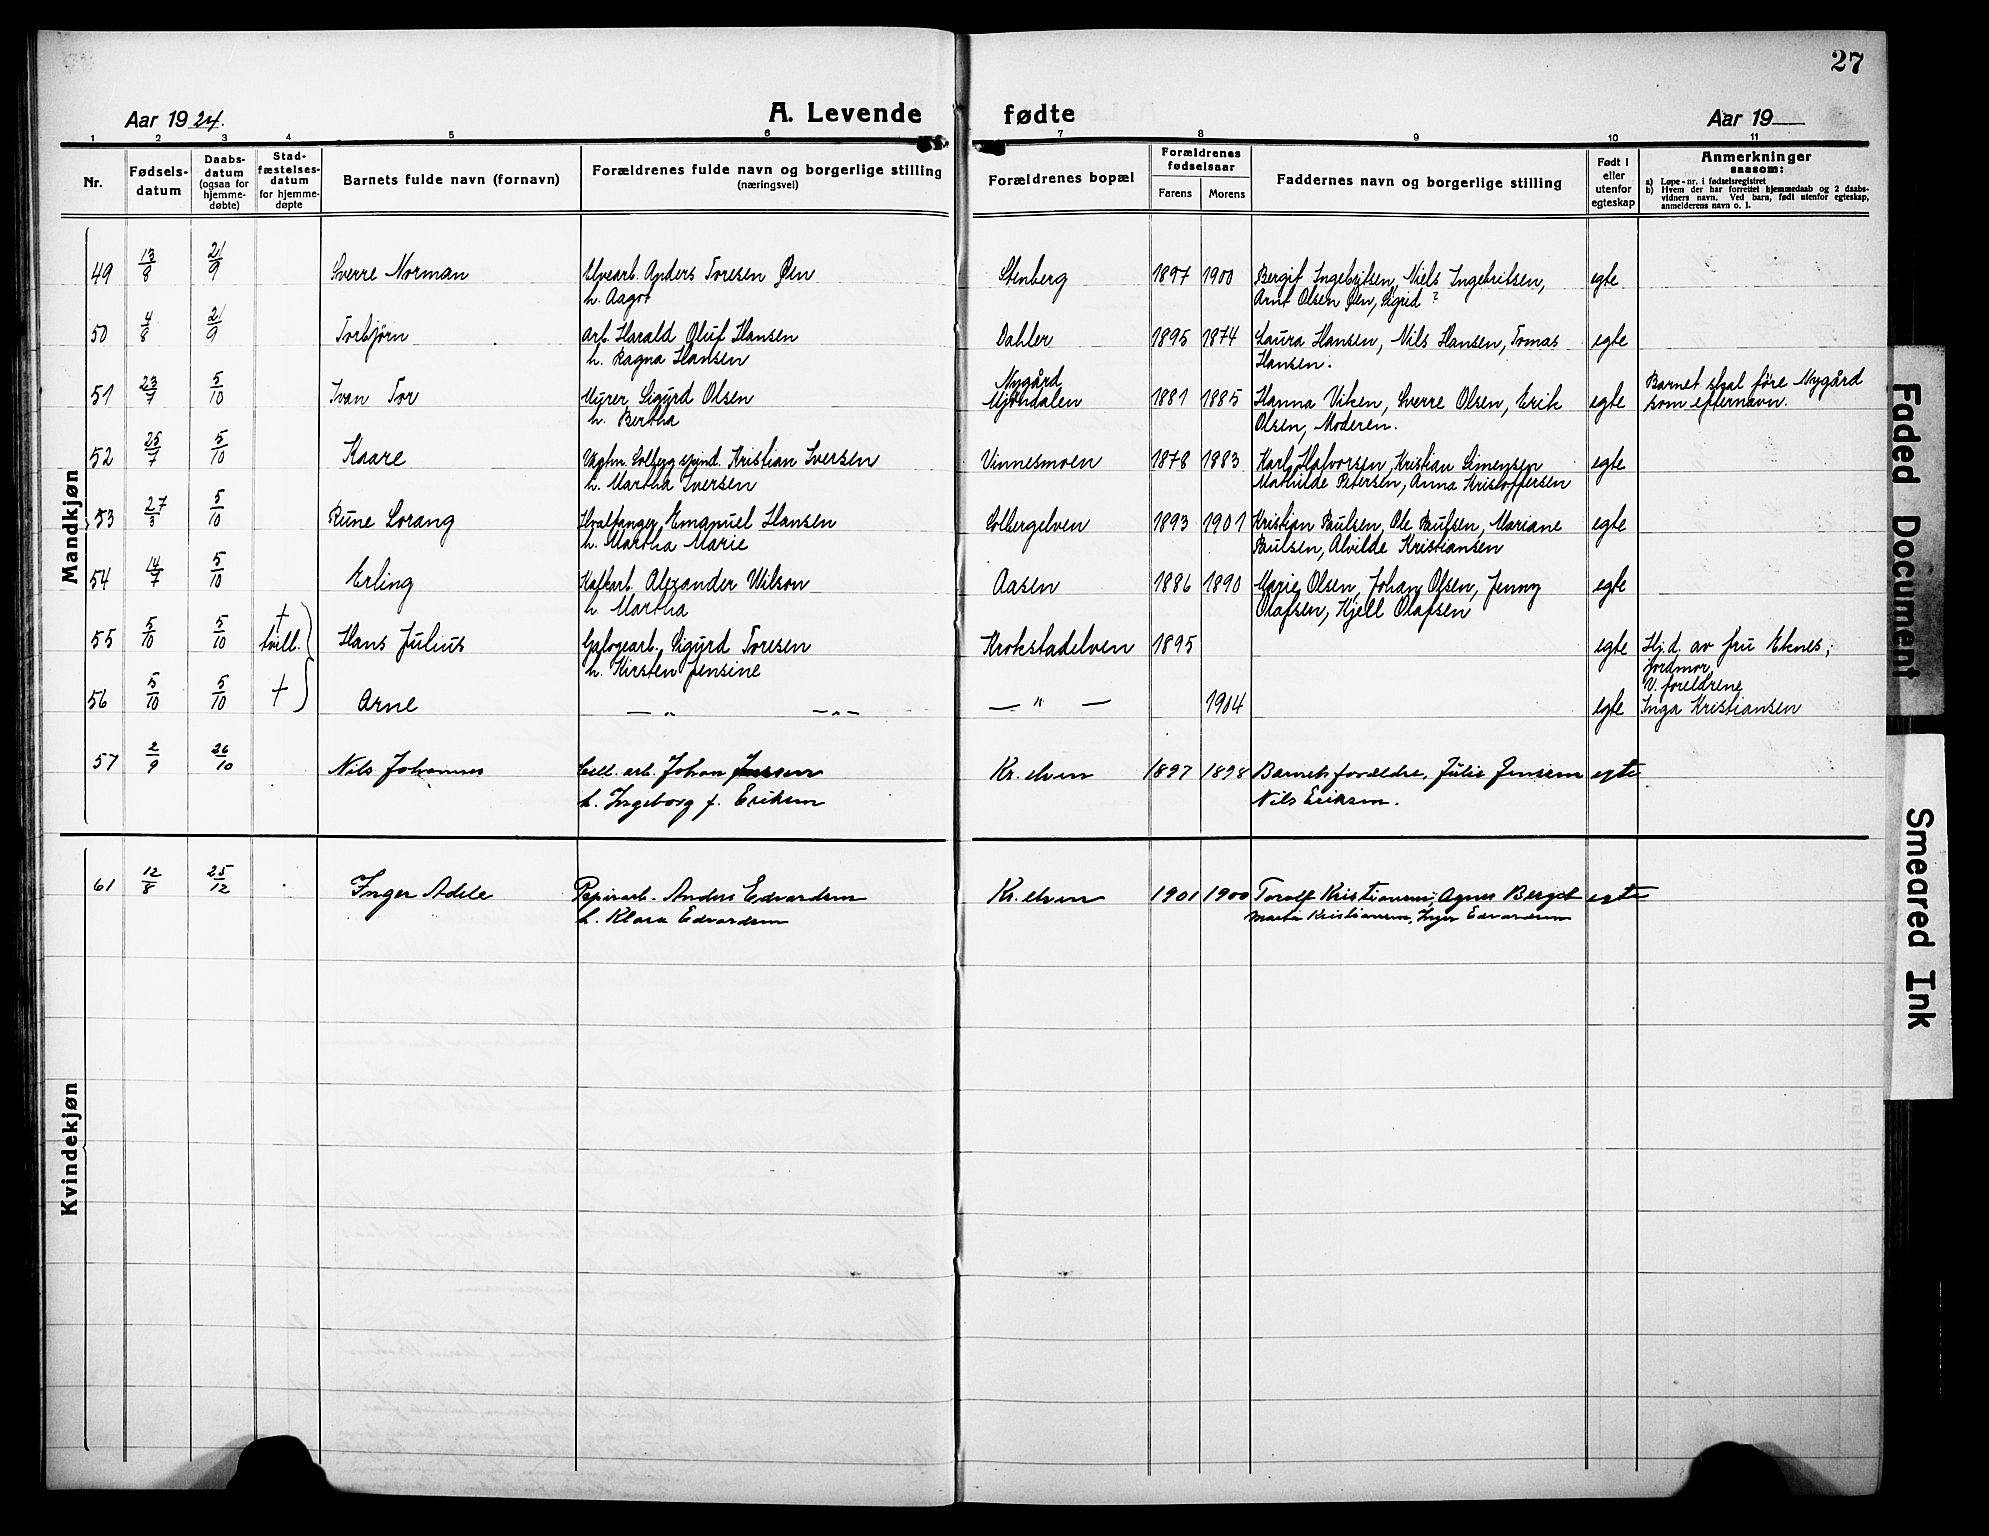 27
Aar 1924.
A. Levende fødte
Aar 19
1 2 3 4 5 6 7 8 9 10 11
Nr.
Fødsels-
datum
Daabs-
datum
(ogsaa for
hjemme-
døbte)
Stad-
fæstelses-
datum
for hjemme-
døpte
Barnets fulde navn (fornavn)
Forældrenes fulde navn og borgerlige stilling
(næringsvei)
Forældrenes bopæl
Forældrenes
fødselsaar
Farens Morens
Faddernes navn og borgerlige stilling
Født i
eller
utenfor
egteskap
Anmerkninger
saasom:
a) Løpe-nr. i fødselsregistret
b) Hvem der har forrettet hjemmedaab og 2 daabs-
vidners navn. Ved barn, født utenfor egteskap,
anmelderens navn o. l.
Mandkjøn
49 13/8 21/9 Sverre Norman Elvearb. Anders Toresen Øen Stenberg 1897 1900 Bergit Ingebritsen, Niels Ingebritsen, egte
h. Aagot Arnt Olsen Øen, Sigrid ?
50 4/8 21/9 Torbjørn Arb. Harald Oluf Hansen Dahler 1895 1874 Laura Hansen, Nils Hansen, Tomas egte
h. Ragna Hansen Hansen.
51 23/7 5/10 Ivan Tor Murer Sigurd Olsen Nygård Mjöndalen 1881 1885 Hanna Viken, Sverre Olsen, Erik egte Barnet skal före Nygård
h. Bertha Olsen, Moderen. som efternavn.
52 25/7 5/10 Kaare Vagtm. Solberg spind. Kristian Iversen Vinnesmoen 1878 1883 Karl Halvorsen, Kristian Simensen egte
h. Martha Iversen Mathilde Petersen, Anna Kristoffersen
53 27/3 5/10 Rune Lorang Hvalfanger Emanuel Hansen Solbergelven 1893 1901 Kristian Paulsen, Ole Paulsen, Mariane egte
h. Martha Marie Paulsen, Alvilde Kristiansen
54 14/7 5/10 Erling Kafkarb. Alexander Wilson Aasen 1886 1890 Marie Olsen, Johan Olsen, Jenny egte
h Martha Olafsen, Kjell Olafsen
55 5/10 5/10 † tvill. Hans Julius Sigurd Toresen Krokstadelven 1895 egte Hj.d. av fru Eknes,
h. Kirsten Jensine jordmor
V. foreldrene
56 5/10 5/10 † Arne — „ — — „ — — " — 1904 egte Inga Kristiansen
57 2/9 26/10 Nils Johannes Cell. arb. Johan Jensen Kr. elven 1897 1898 Barnets forældre, Julie Jensen egte
h. Ingeborg f. Eriksen Nils Eriksen.
Kvindekjøn
61 12/8 25/12 Inger Adele Papirarb. Anders Edvardsen Kr. elven 1901 1900 Torolf Kristiansen, Agnes Berget egte
h. Klara Edvardsen Marta Kristiansen, Inger Edvardsen
Faded Document
Smeared Ink